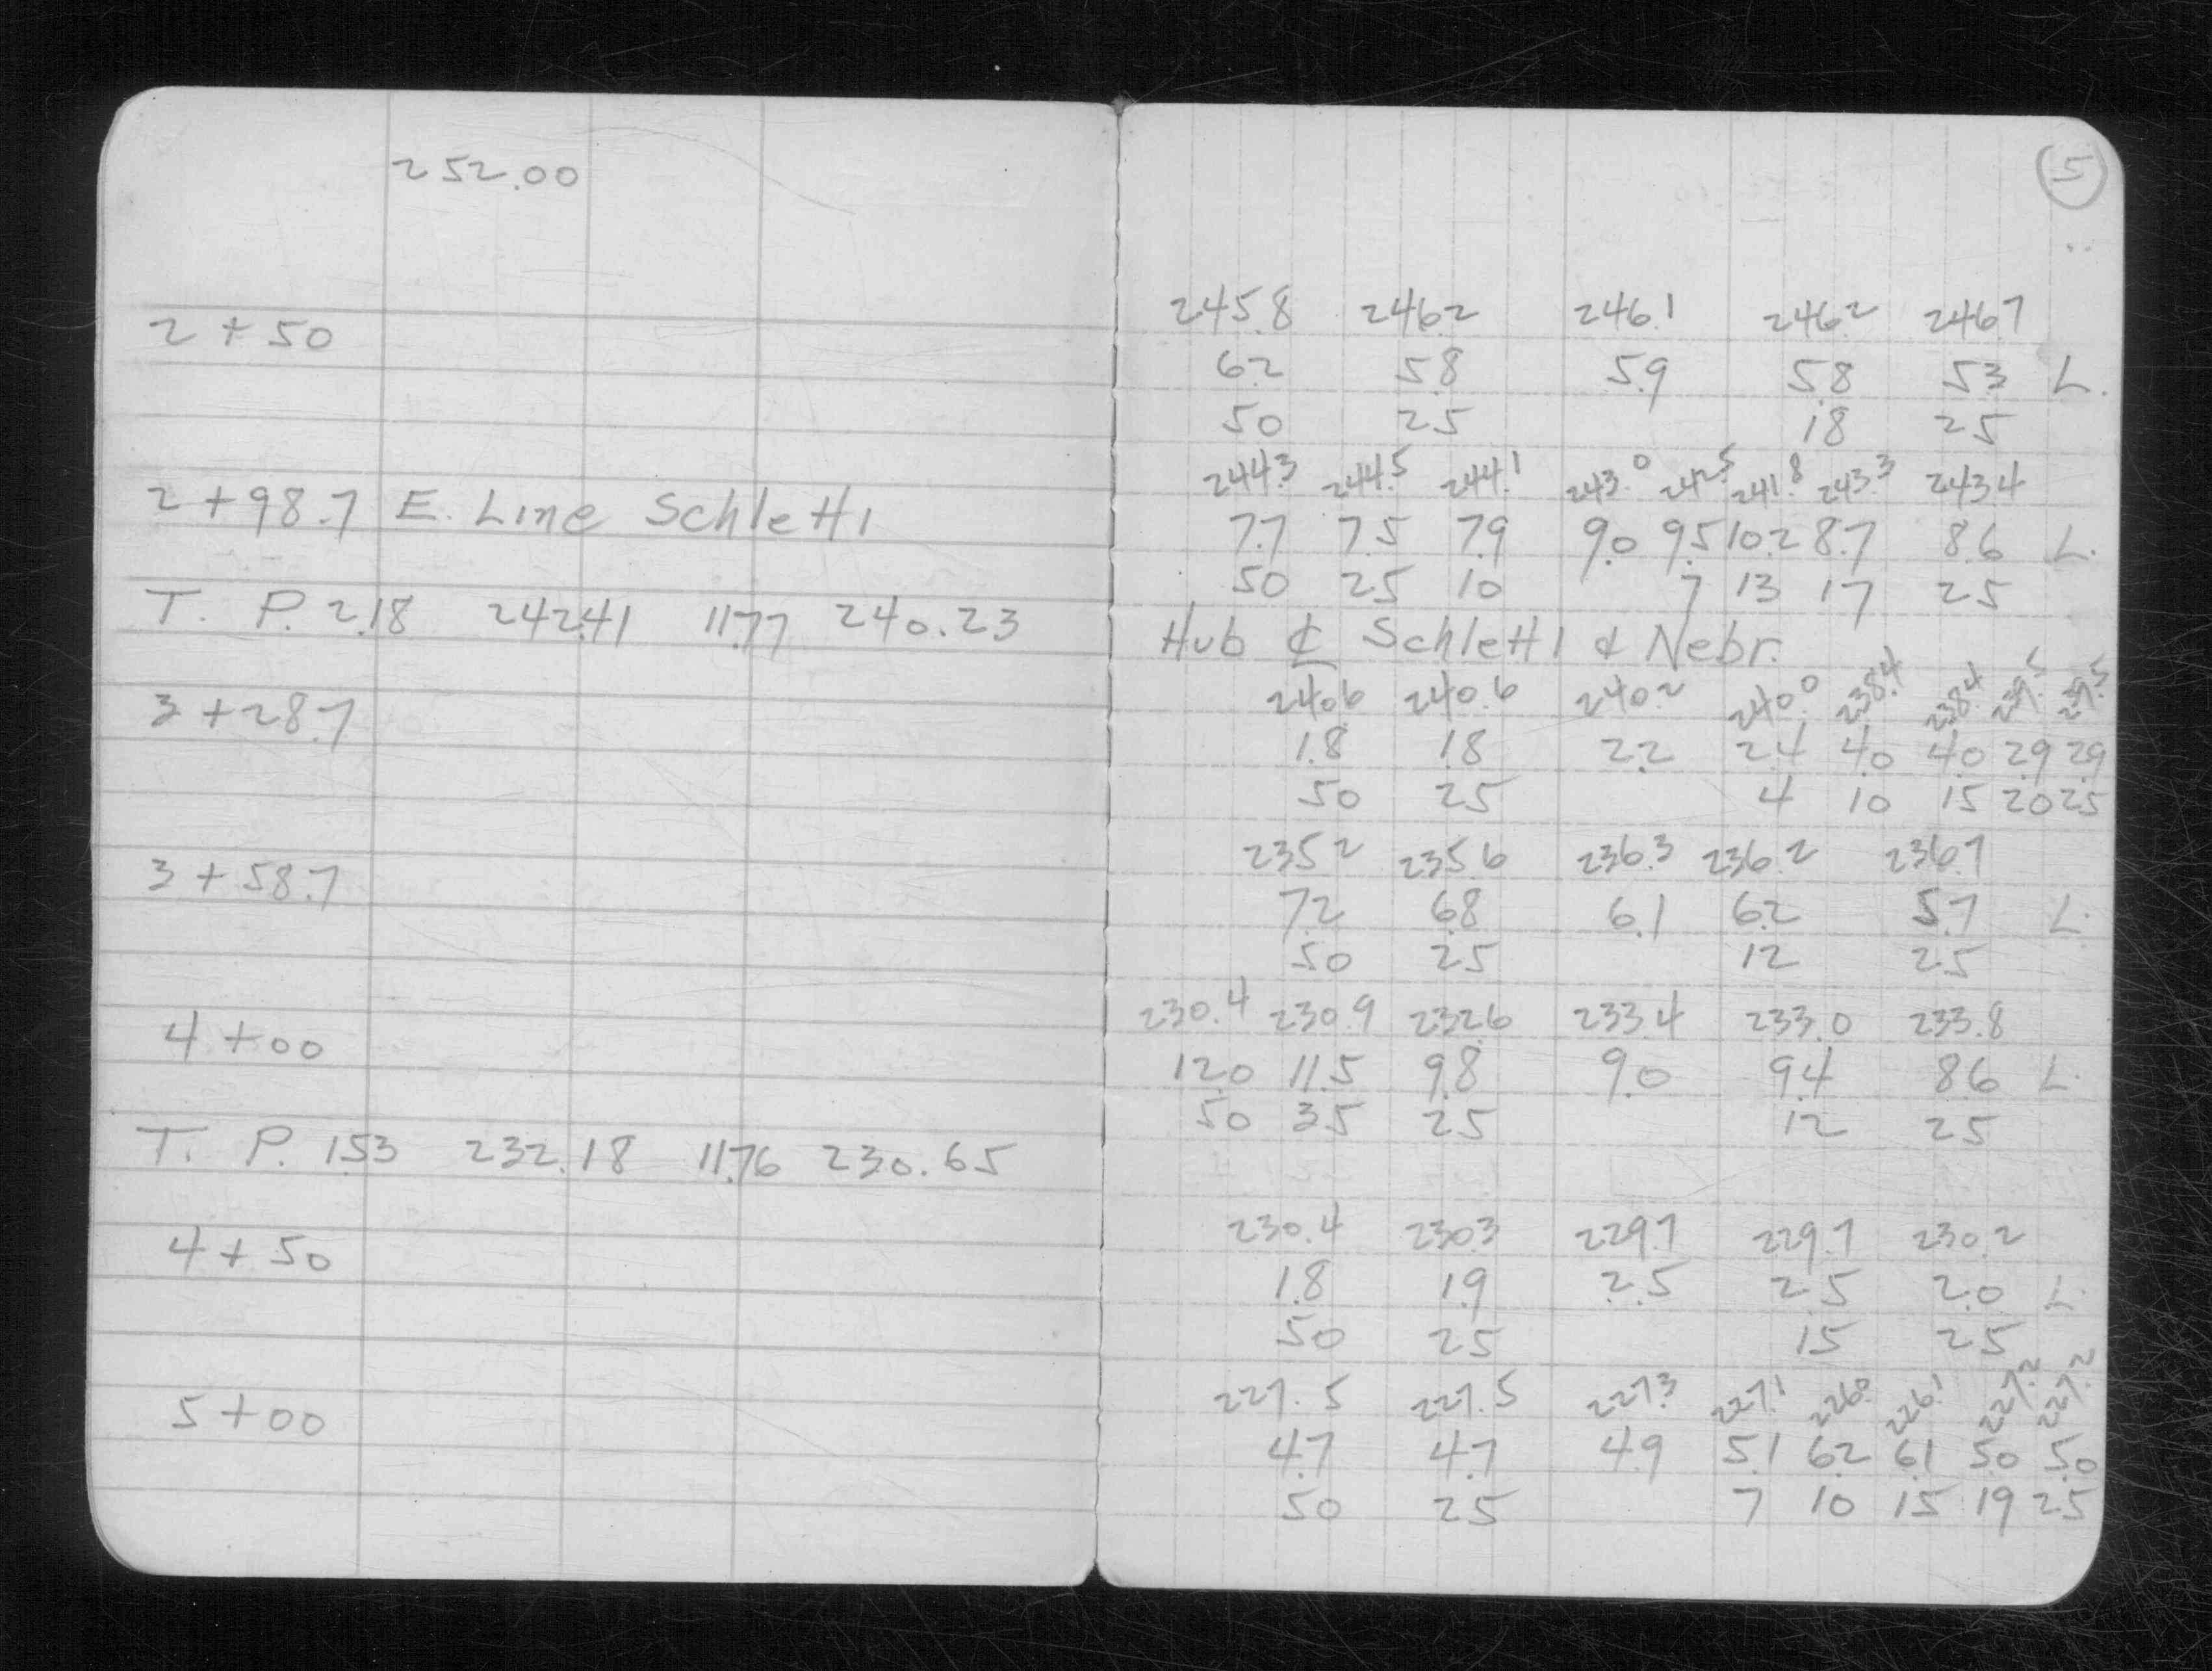 252.00
2 + 50
2 + 98.7 E. Line Schlettl
T. P. 2.18 242.41 11.77 240.23
3 + 28.7
3 + 58.7
4 + 00
T. P. 1.53 232.18 11.76 230.65
4 + 50
5 + 00
5
245.8 246.2 246.1 246.2 246.7
6.2 5.8 5.9 5.8 5.3 L.
50 25 18 25
244.3 244.5 244.1 243.0 242.5 241.8 243.3 243.4
7.7 7.5 7.9 9.0 9.5 10.2 8.7 8.6 L.
50 25 10 7 13 17 25
Hub ₵ Schlettl & Nebr.
240.6 240.6 240.2 240.0 238.4 238.4 239.5 239.5
1.8 1.8 2.2 2.4 4.0 4.0 2.9 2.9
50 25 4 10 15 20 25
235.2 235.6 236.3 236.2 236.7
7.2 6.8 6.1 6.2 5.7 L.
50 25 12 25
230.4 230.9 232.6 233.4 233.0 233.8
12.0 11.5 9.8 9.0 9.4 8.6 L.
50 35 25 12 25
230.4 230.3 229.7 229.7 230.2
1.8 1.9 2.5 2.5 2.0 L.
50 25 15 25
227.5 227.5 227.3 227.1 226.0 226.1 227.2 227.2
4.7 4.7 4.9 5.1 6.2 6.1 5.0 5.0
50 25 7 10 15 19 25